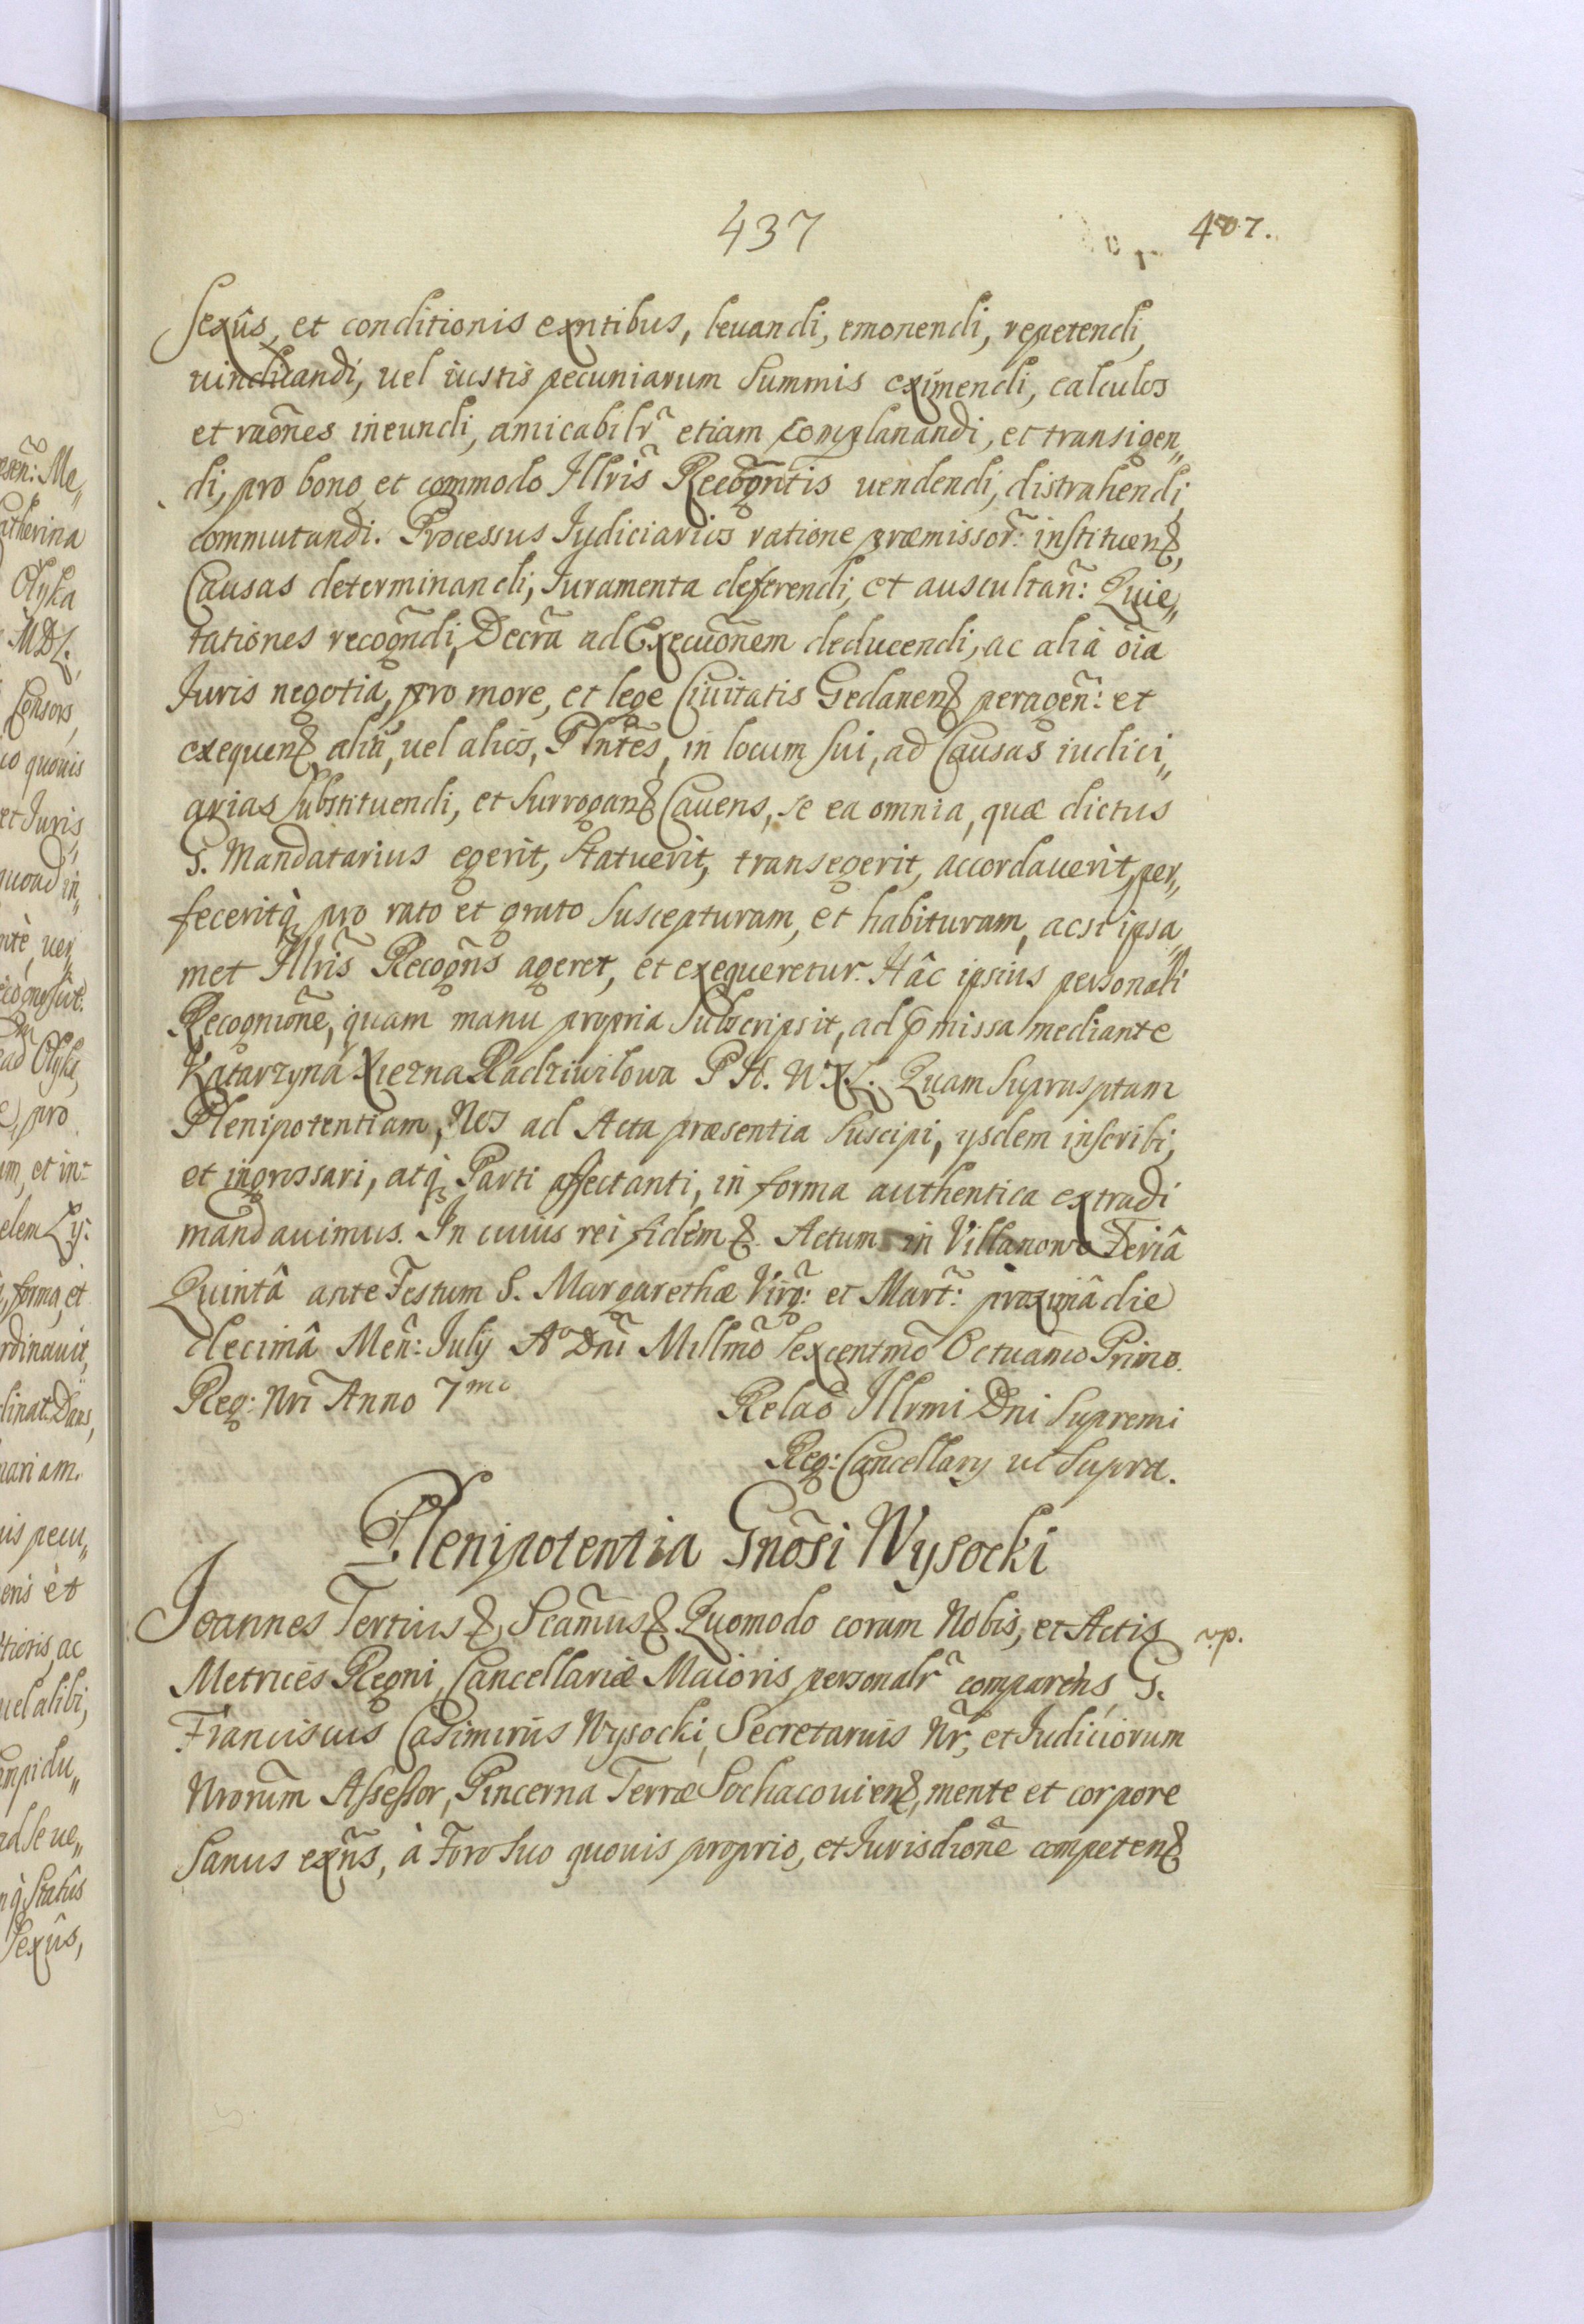 437
407.
Sexûs, et conditionis exñtibus, leuandi, emonendi, repetendi,
uindicandi, uel iustis pecuniarum Summis eximendi, calculos
et raõnes ineundi, amicabilr̃ etiam complanandi, et transigen„
di, pro bono et commodo Illris̃ Recogñtis uendendi, distrahendi,
commutandi. Processus Iudiciarios ratione præmissor̃: instituen&,
Causas determinandi, Iuramenta deferendi, et auscultañ: Quie„
tationes recogñdi, Decrã ad Execuõnem deducendi, ac alia oĩa
Iuris negotia, pro more, et lege Ciuitatis Gedanen& peragen̄: et
exequen& aliũ, uel alios, Plñtes, in locum sui, ad Causas iudici„
arias Substituendi, et Surrogan& Cauens, se ea omnia, quæ dictus
G. Mandatarius egerit, Statuerit, transegerit, accordauerit, per„
feceritq́ pro rato et grato Suscepturam, et habituram, ac si ipsa„
met Illris̃ Recogñs ageret, et exequeretur. Hâc ipsius personali
Recogniõne, quam manu propria Subscripsit, ad p̃missa mediante
Katarzyna Xiezna Radziwilowa P K. W X L. Quam Suprasptam
Plenipotentiam, Nos ad Acta præsentia Suscipi, ysdem inscribi,
et ingrossari, atq́ Parti affectanti, in forma authentica extradi
mandauimus. In cuius rei fidem &. Actum in Villanowa Feriâ
Quintâ ante Festum S. Margarethæ Virg̃: et Mart̃: proximâ die
decimâ Meñ: July Aº Dñi Millmõ Sexcentmõ Octuamo Primo.
Reg: Nrĩ Anno 7mo
Relaõ Illrmi Dni Supremi
Reg: Cancellary ut Supra.
Plenipotentia Gnõsi Wysocki
Ioannes Tertius &, Scam̃us & Quomodo coram Nobis, et Actis
v.p.
Metrices Regni, Cancellariæ Maioris personalr̃ comparens, G.
Franciscus Casimirus Wysocki, Secretarius Nr̃, et Iudiciorum
Nrorũm Assessor, Pincerna Terræ Sochacouien&, mente et corpore
Sanus exñs, à Foro Suo quouis proprio, et Iurisdiõne competen&